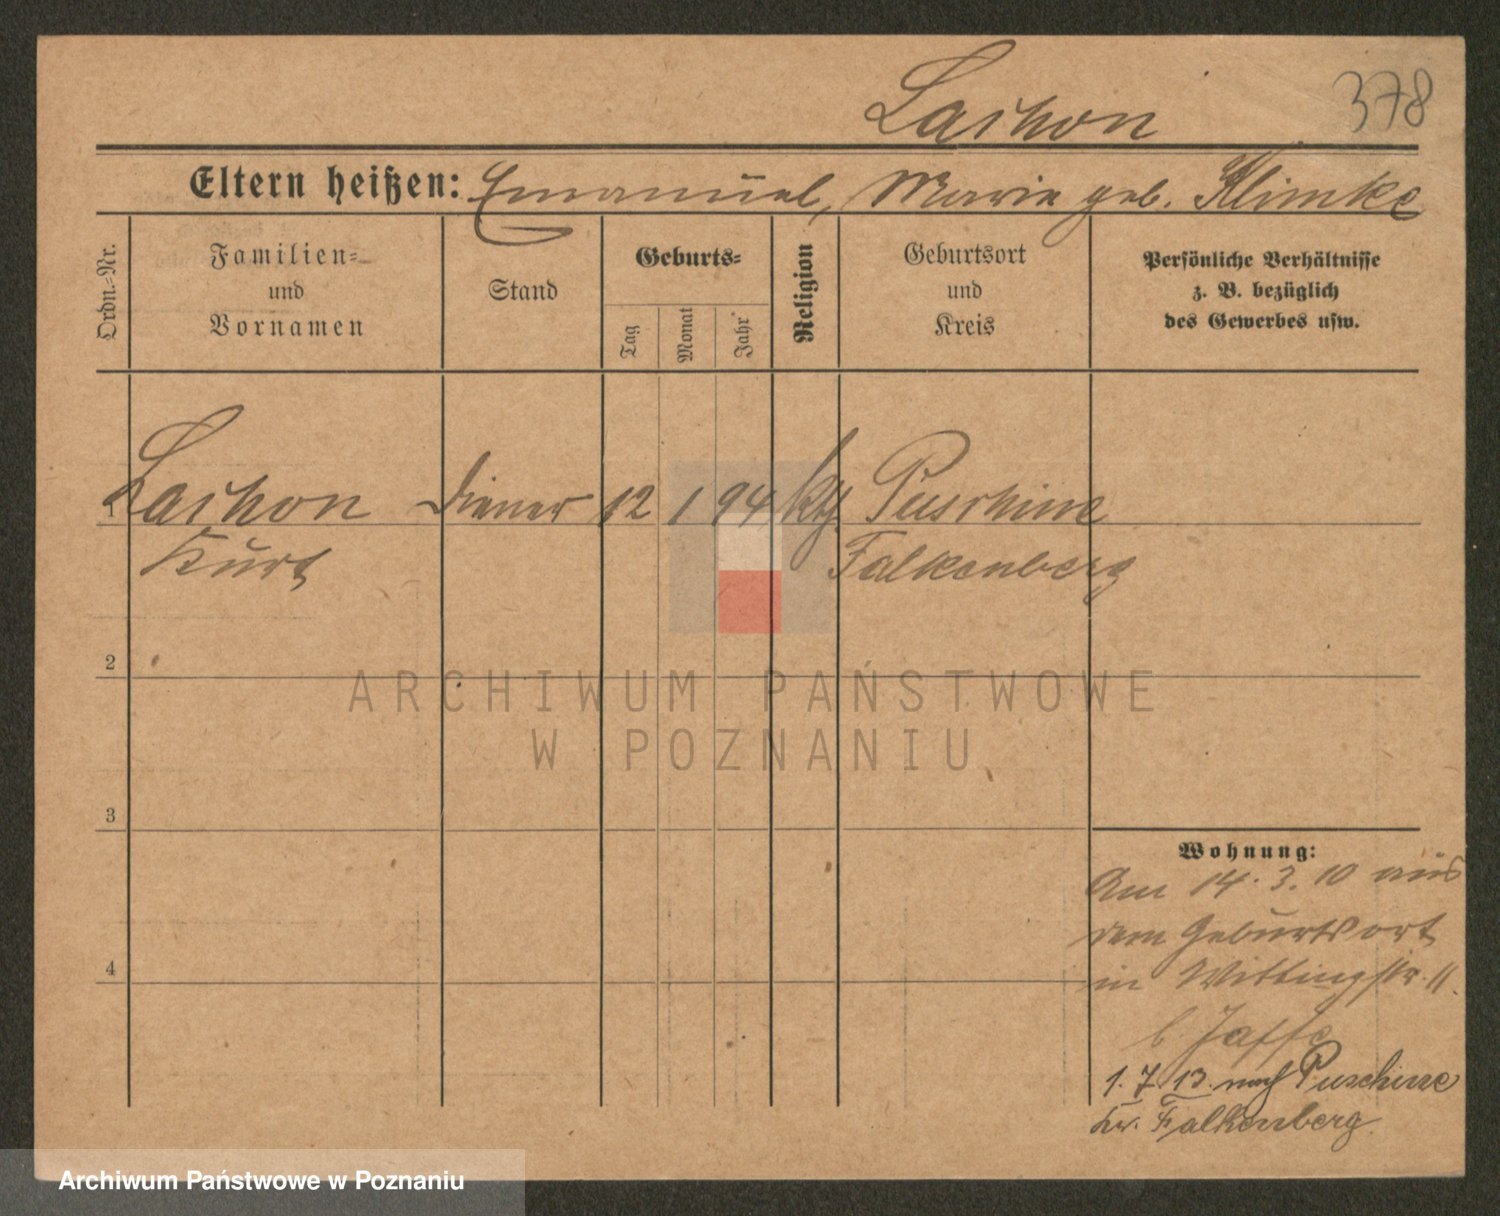 378
Lachon
Eltern heißen: Emanuel, Marie geb. Klimke
Ordn.-Nr.
Familien-
und
Vornamen
Stand
Geburts-
Tag
Monat
Jahr
Religion
Geburtsort
und
Kreis
Persönliche Verhältnisse
z. B. bezüglich
des Gewerbes usw.
1
Lachon Diener 12 1 94 kth. Puschine
Kurt Falkenberg
2
3
4
Wohnung:
Am 14. 3. 10 aus
dem Geburtsort
in Wittingstr. 11.
b Jaffe
1. 7. 13. nach Puschine
Kr. Falkenberg.
ARCHIWUM PAŃSTWOWE
W POZNANIU
Archiwum Państwowe w Poznaniu